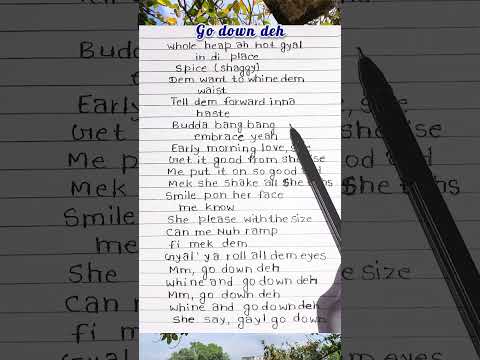 Go down deh
whole heap ah hot gyal
in di place
Spice (shaggy)
Dem want to whine dem
waist
Tell dem forward inna
haste
Budda bang bang
embrace yeah
Early morning love,
Get it good from
Me put it on so good
Mek she shake all she
Smile pon her face
me know
She please with the size
Can me Nuh ramp
fi mek dem
Gyal' ya roll all dem eyes
Mm, go down deh
whine and go down deh
Mm, go down deh
whine and go down deh
She say, gayl go down